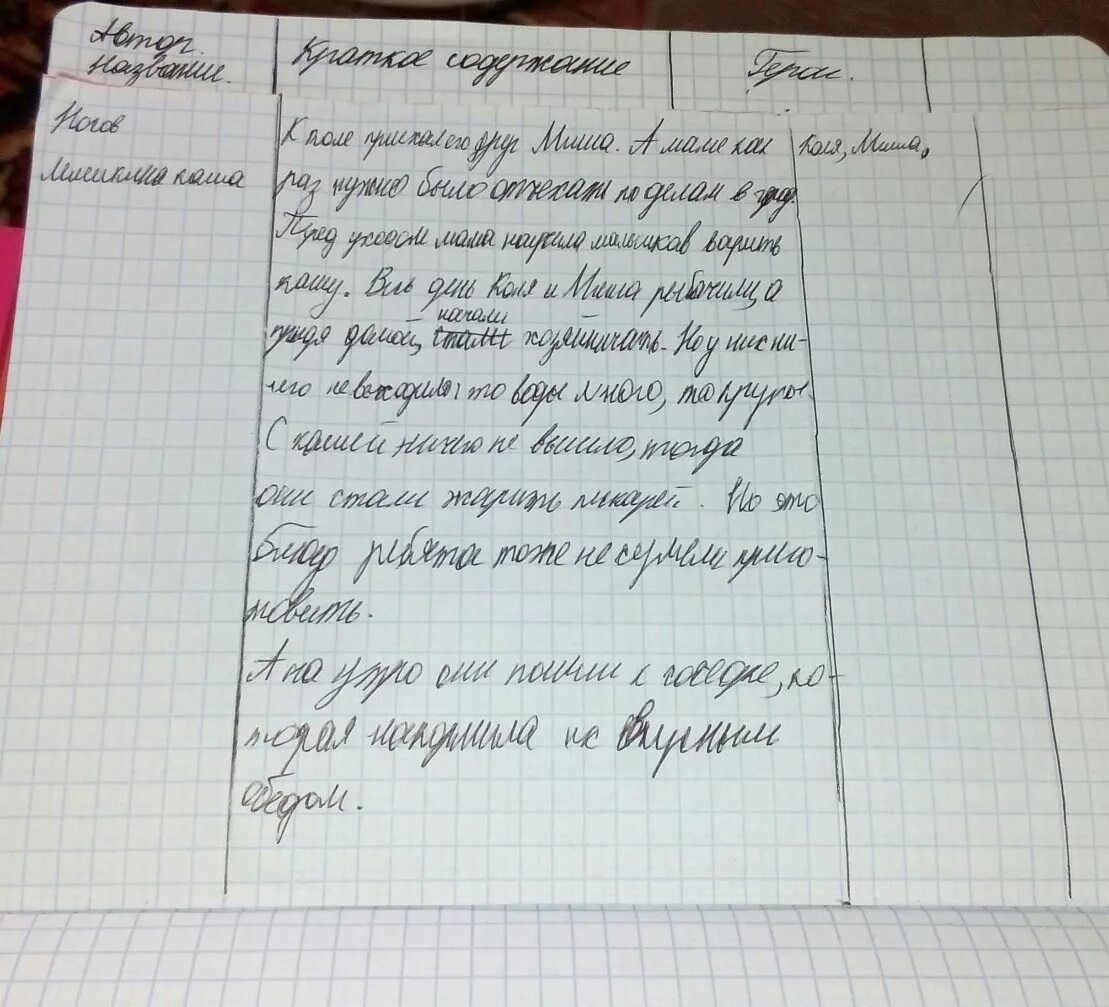 Автор.
Название.
Краткое содержание
Герои.
Носов
Мишкина каша
К Коле приехал его друг Миша. А маме как
раз нужно было отъехать по делам в город.
Перед уходом мама научила мальчиков варить
кашу. Весь день Коля и Миша рыбачили, а
придя домой, начали хозяйничать. Но у них ни-
чего не выходило: то воды много, то крупы.
С кашей ничего не вышло, тогда
они стали жарить пескарей. Но это
блюдо ребята тоже не сумели приго-
товить.
А на утро они пошли к соседке, ко-
торая накормила их вкусным
обедом.
Коля, Миша.